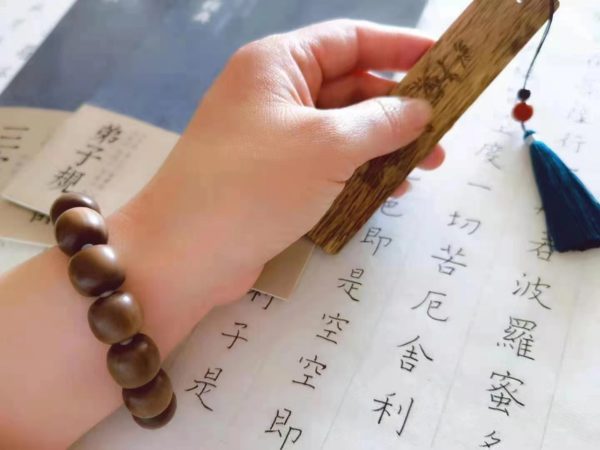 行
波羅蜜
度一切苦厄舍利
即是空空即
子是
弟子規
三